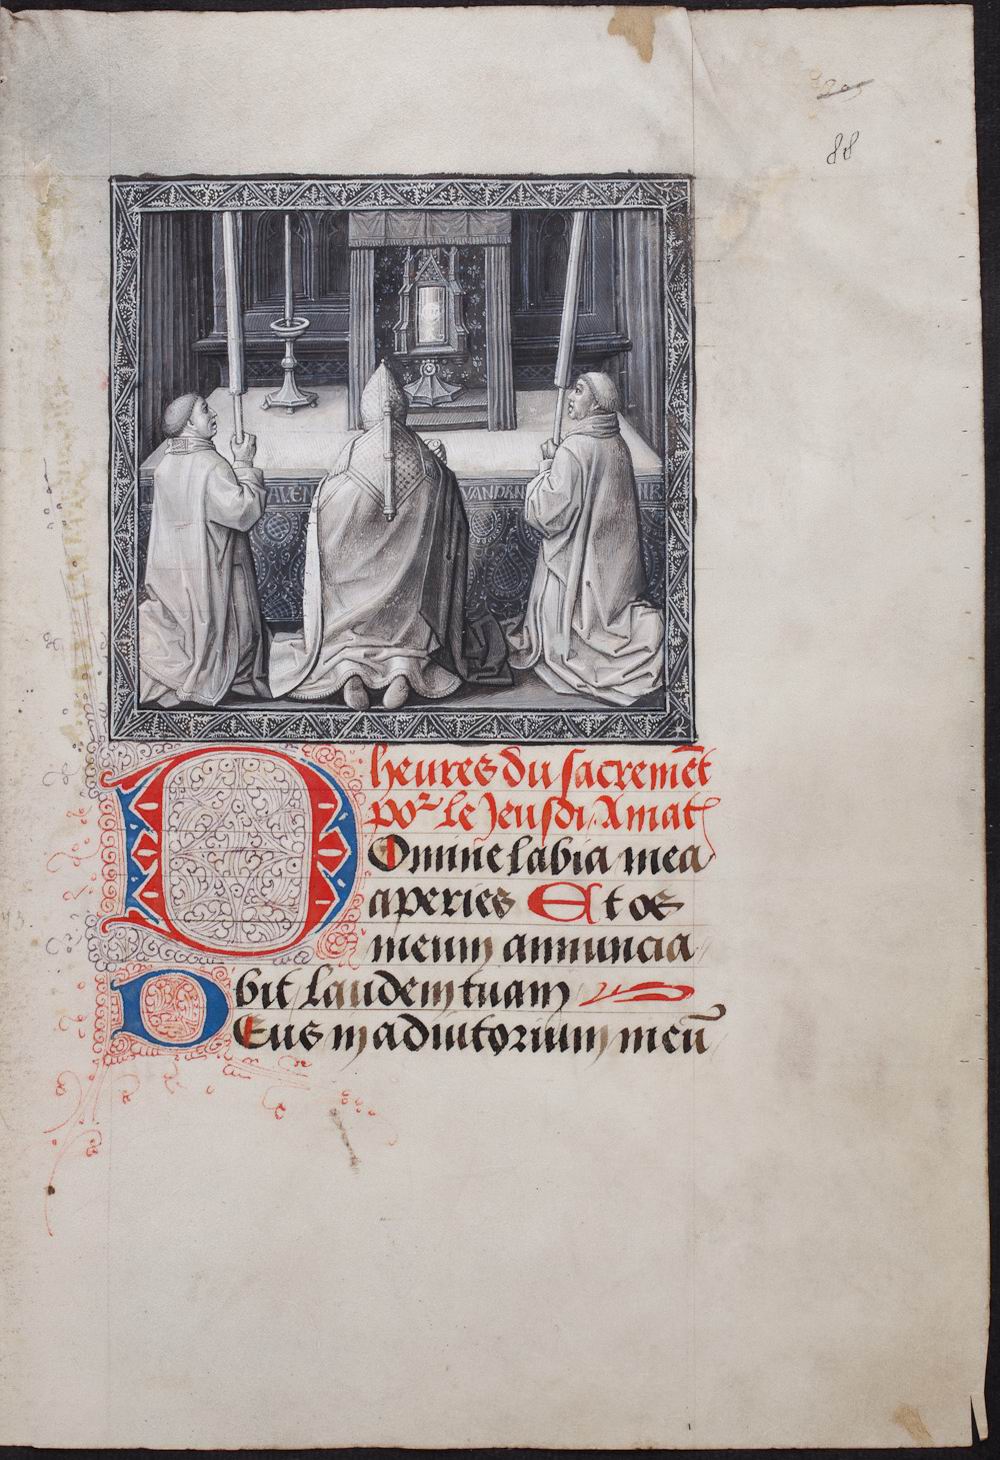 205
88
AVEN VANDRN IR
heures du sacremēt
por le Jeusdi A mat
DOmine labia mea
aperies Et os
meum annuncia
bit laudem tuam
DEus in adiutorium meū